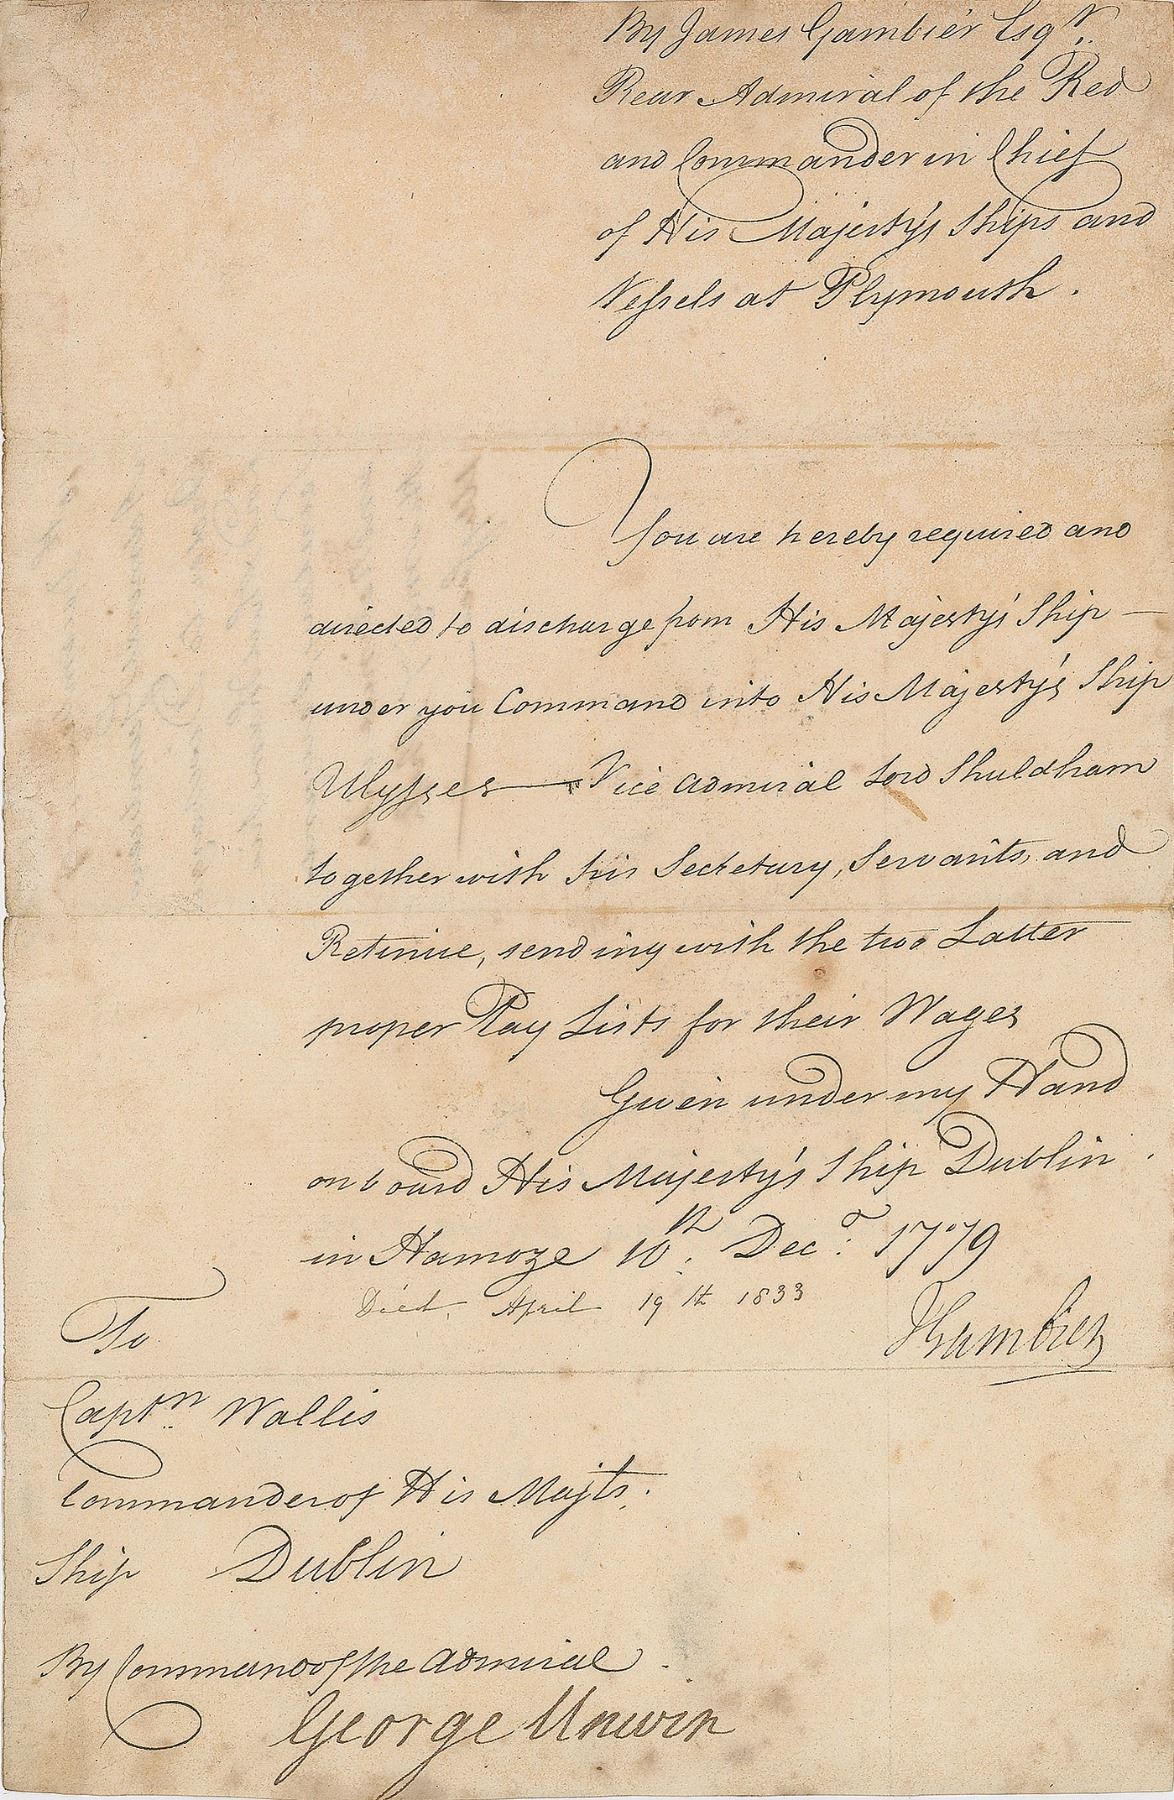 By James Gambier Esqr.
Rear Admiral of the Red
and Commander in Chief
of His Majesty's Ships and
Vessels at Plymouth.
You are hereby required and
directed to discharge from His Majesty's Ship —
under you Command into His Majesty's Ship
Ulysses — Vice Admiral Lord Shuldham
together with his Secretary, Servants, and
Retinue, sending with the two Latter
proper Pay Lists for their Wages
Given under my Hand
on board His Majesty's Ship Dublin.
in Hamoze 10th. Decr: 1779
Died, April 19th 1833
JGambier
To
Captn Wallis
Commander of His Majts.
Ship Dublin
By Command of the Admiral.
George Unwin